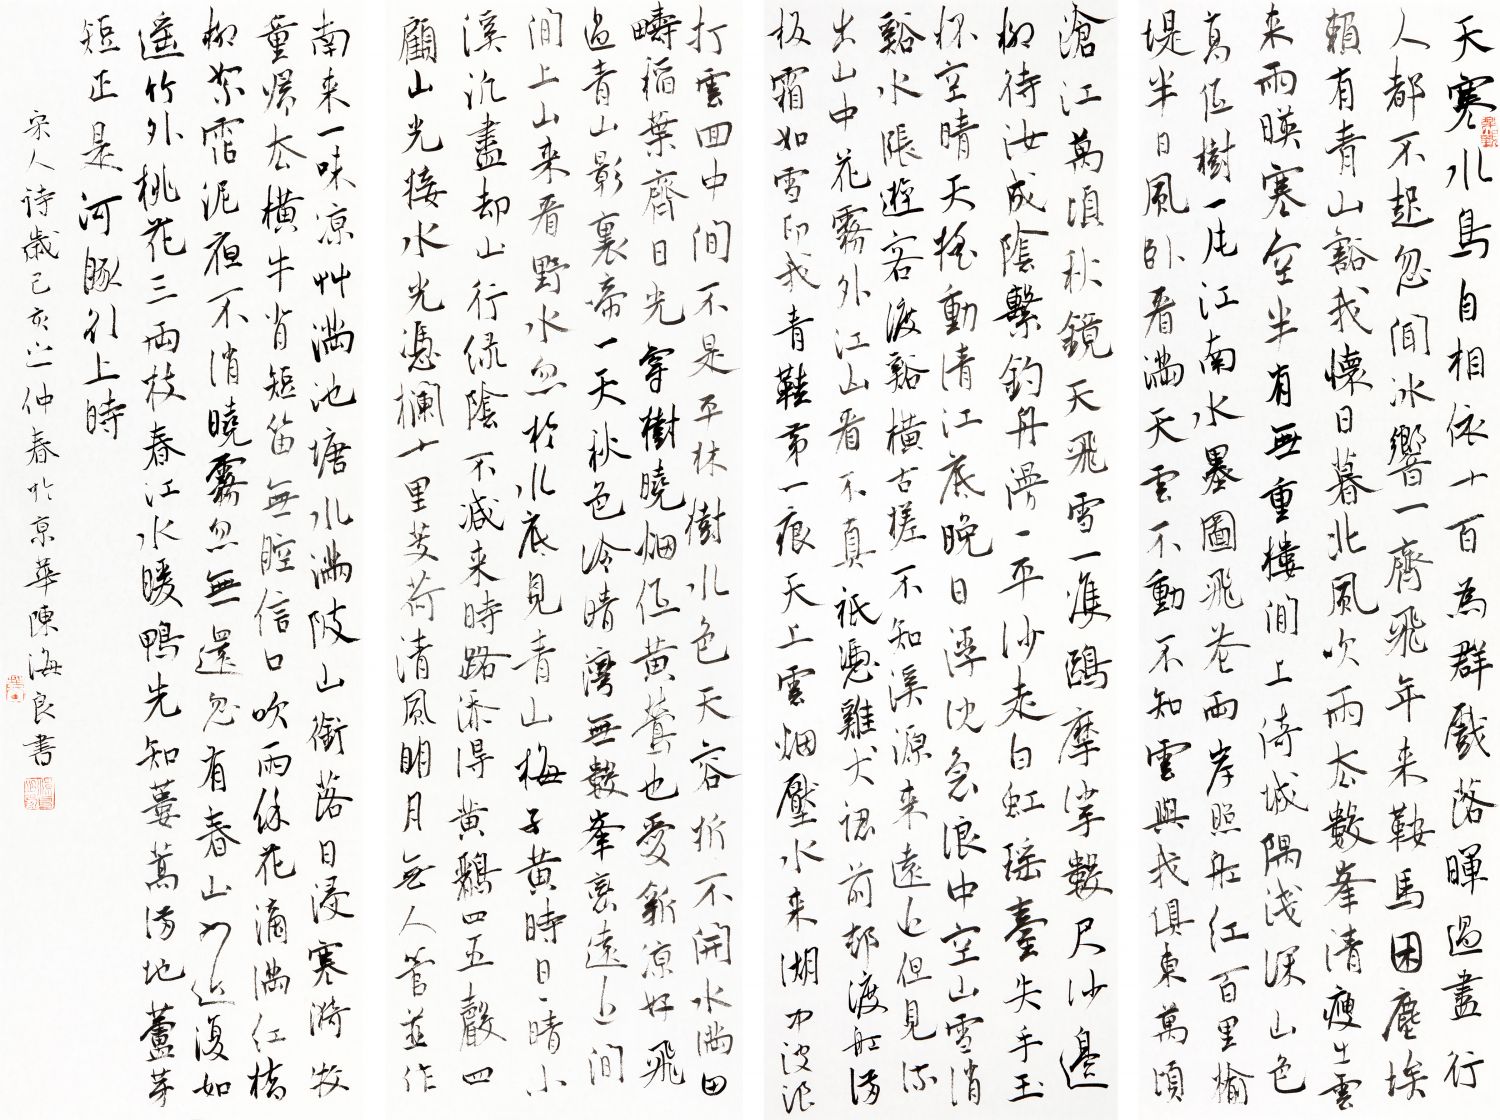 天寒水鳥自相依十百為群戲落暉過盡行
人都不起忽聞冰響一齊飛年来鞍馬困塵埃
賴有青山豁我懷日暮北風吹雨去數峯清瘦出雲
来雨暎寒空半有無重樓閒上倚城隅淺深山色
高低樹一片江南水墨圖飛花兩岸照船紅百里榆
堤半日風卧看滿天雲不動不知雲與我俱東萬頃
滄江萬頃秋鏡天飛雪一雙鷗摩挲數尺沙邊
柳待汝成陰繫釣舟漫々平沙走白虹瑶臺失手玉
杯空晴天摇動清江底晚日浮沈急浪中空山雪消
谿水漲遊客渡谿橫古槎不知溪源来遠近但見流
出山中花霧外江山看不真祇憑雞犬認前邨渡船滿
板霜如雪印我青鞋第一痕天上雲烟壓水来湖中波浪
打雲回中間不是平林樹水色天容拆不開水滿田
疇稻葉齊日光穿樹曉烟低黄鶯也愛新涼好飛
過青山影裏啼一天秋色冷晴灣無數峯巒遠近間
閒上山来看野水忽於水底見青山梅子黄時日日晴小
溪泛盡却山行緑陰不減来時路添得黄鸝四五聲四
顧山光接水光憑欄十里芰荷清風明月無人管並作
南来一味凉艸滿池塘水滿陂山銜落日浸寒漪牧
童歸去橫牛背短笛無腔信口吹雨餘花滴滿紅橋
柳絮霑泥夜不消曉霧忽無還忽有春山如近復如
遥竹外桃花三兩枝春江水暖鴨先知蔞蒿滿地蘆芽
短正是河豚欲上時
宋人詩歲己亥之仲春於京華陳海良書